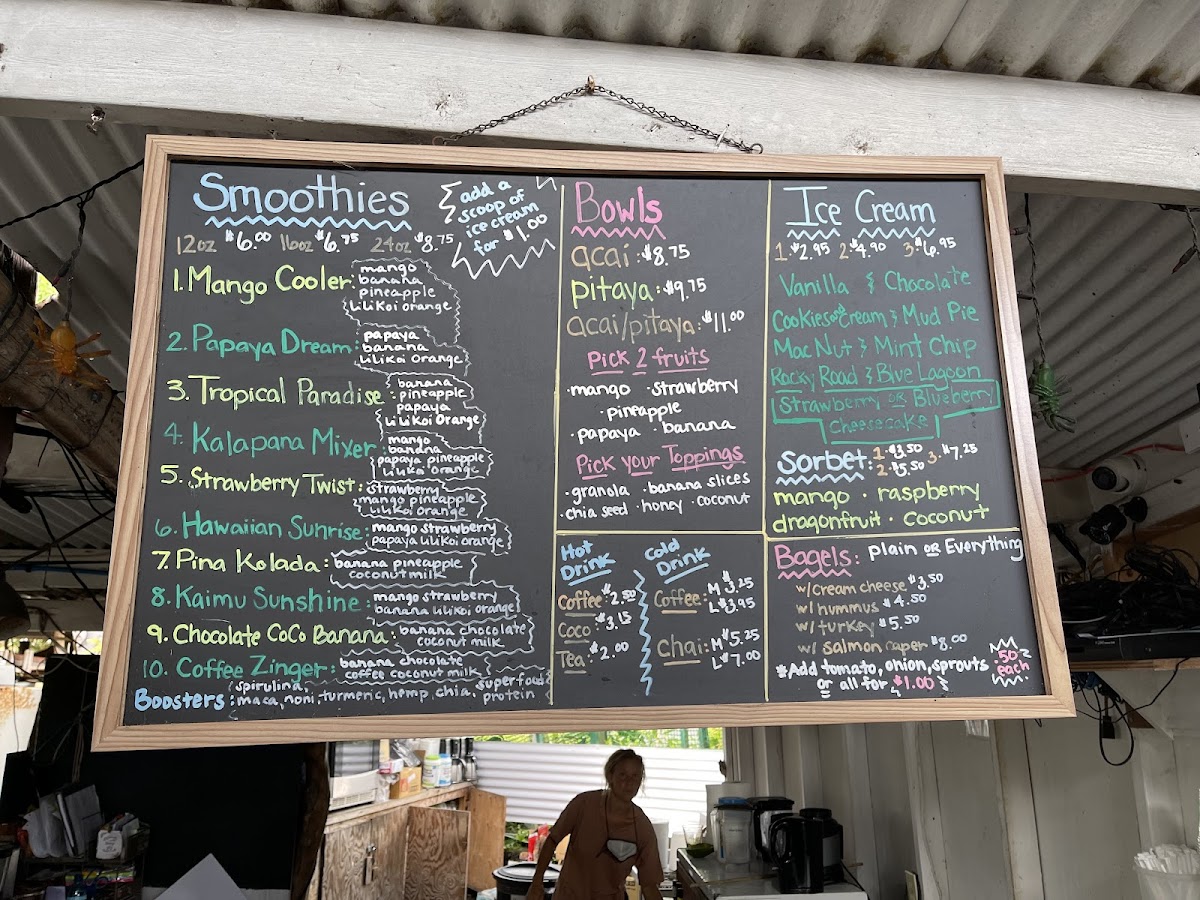 Smoothies
12oz $6.00 16oz $6.75 24oz $8.75
add a
scoop of
ice cream
for $1.00
1. Mango Cooler:
mango
banana
pineapple
Lilikoi orange
2. Papaya Dream:
papaya
banana
Lilikoi Orange
3. Tropical Paradise:
banana
pineapple
papaya
Lilikoi Orange
4. Kalapana Mixer:
mango
banana
papaya pineapple
Lilikoi orange
5. Strawberry Twist:
strawberry
mango pineapple
Lilikoi orange
6. Hawaiian Sunrise:
mango strawberry
papaya Lilikoi orange
7. Pina Kolada:
banana pineapple
coconut milk
8. Kaimu Sunshine:
mango strawberry
banana lilikoi orange
9. Chocolate CoCo Banana:
banana chocolate
coconut milk
10. Coffee Zinger:
banana chocolate
coffee coconut milk
Boosters:
spirulina,
maca, noni, turmeric, hemp, chia,
superfood
protein
Bowls
acai: $8.75
pitaya: $9.75
acai/pitaya: $11.00
Pick 2 fruits
·mango ·strawberry
·pineapple
·papaya ·banana
Pick your Toppings
·granola ·banana slices
·chia seed ·honey ·coconut
Hot
Drink
Coffee: $2.50
Coco: $3.15
Tea: $2.00
Cold
Drink
Coffee: M $3.25
L $3.95
Chai: M $5.25
L $7.00
Ice Cream
1. $2.95 2. $4.90 3. $6.95
Vanilla & Chocolate
Cookies and Cream & Mud Pie
Mac Nut & Mint Chip
Rocky Road & Blue Lagoon
Strawberry OR Blueberry
Cheesecake
Sorbet: 1. $3.50 3. $7.25
2. $5.50
mango · raspberry
dragonfruit · coconut
Bagels: plain OR Everything
w/cream cheese $3.50
w/ hummus $4.50
w/ turkey $5.50
w/ salmon caper $8.00
*Add tomato, onion, sprouts
or all for $1.00
.50
each